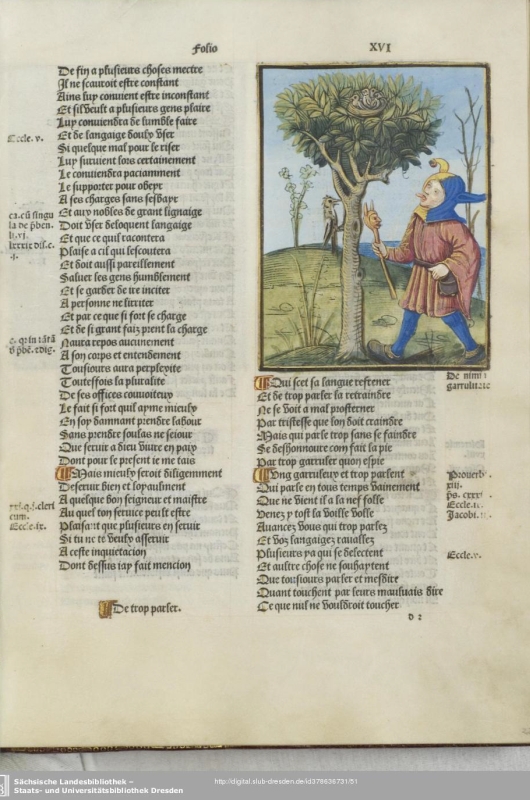 Folio XVI
De fin a plusieurs choses mectre
Il ne scauroit estre constant
Ains luy conuient estre inconstant
Et sil veult a plusieurs gens plaire
Luy conuiendra de humble faire
Et de langaige douly vser
Si quelque mal pour le riser
Luy suruient lors certainement
Le conuiendra paciamment
Le supporter pour obeyr
A ses charges sans
Et aux nobles de grant lignaige
Doit vser deloquent langaige
Et que ce quil racontera
Plaise a cil qui lescoutera
Et doit aussi pareillement
Saluer les gens humblement
Et se garder de ire inciter
A personne ne irriter
Et par ce que si fort se charge
Et de si grant faiz prent la charge
Naura repos aucunement
A son corps et entendement
Tousiours aura perplexite
Toutesfois la pluralite
De ses offices conuoiteux
Le fait si fort quil ayme mieulx
En soy damnant prendre labour
Sans prendre soulas ne seiour
Que seruir a dieu viure en paix
Dont pour le present ie me tais
Mais mieulx seroit diligemment
Deseruir bien et loyaulment
A quelque bon seigneur et maistre
Au quel ton seruice peult estre
Plaisant que plusieurs en seruir
Si tu ne te veulx asseruir
A ceste inquietacion
Dont dessus iay fait mencion
De trop parler.
Eccle. v.
ca. cū singu
la de p̄ben.
li. vi.
lxxxix dis. c.
.i.
Eccle. ix.
Qui scet sa langue refrener
Et de trop parler la retraindre
Ne se doit a mal prosterner
Par tristesse que lon doit craindre
Mais qui parle trop sans se faindre
Se deshonnoure com fait la pie
Par trop garruler quon espie
Ung garruleux et trop parlent
Qui parle en tous temps vainement
Que ne vient il a la nef folle
Venez y tost la voille volle
Auancez vous qui trop parlez
Et voz langaiges raualez
Plusieurs ya qui se delectent
Et aultre chose ne souhaytent
Que tousiours parler et mesdire
Quant touchent par leurs mauluais dire
Ce que nul ne vouldroit toucher
d 2
De nimi
garrulitate
Prouerb.
xiii.
ps. cxxxi
Eccle.
Jacobi.
Eccle. v.
Sächsische Landesbibliothek –
Staats- und Universitätsbibliothek Dresden
http://digital.slub-dresden.de/id378636731/51